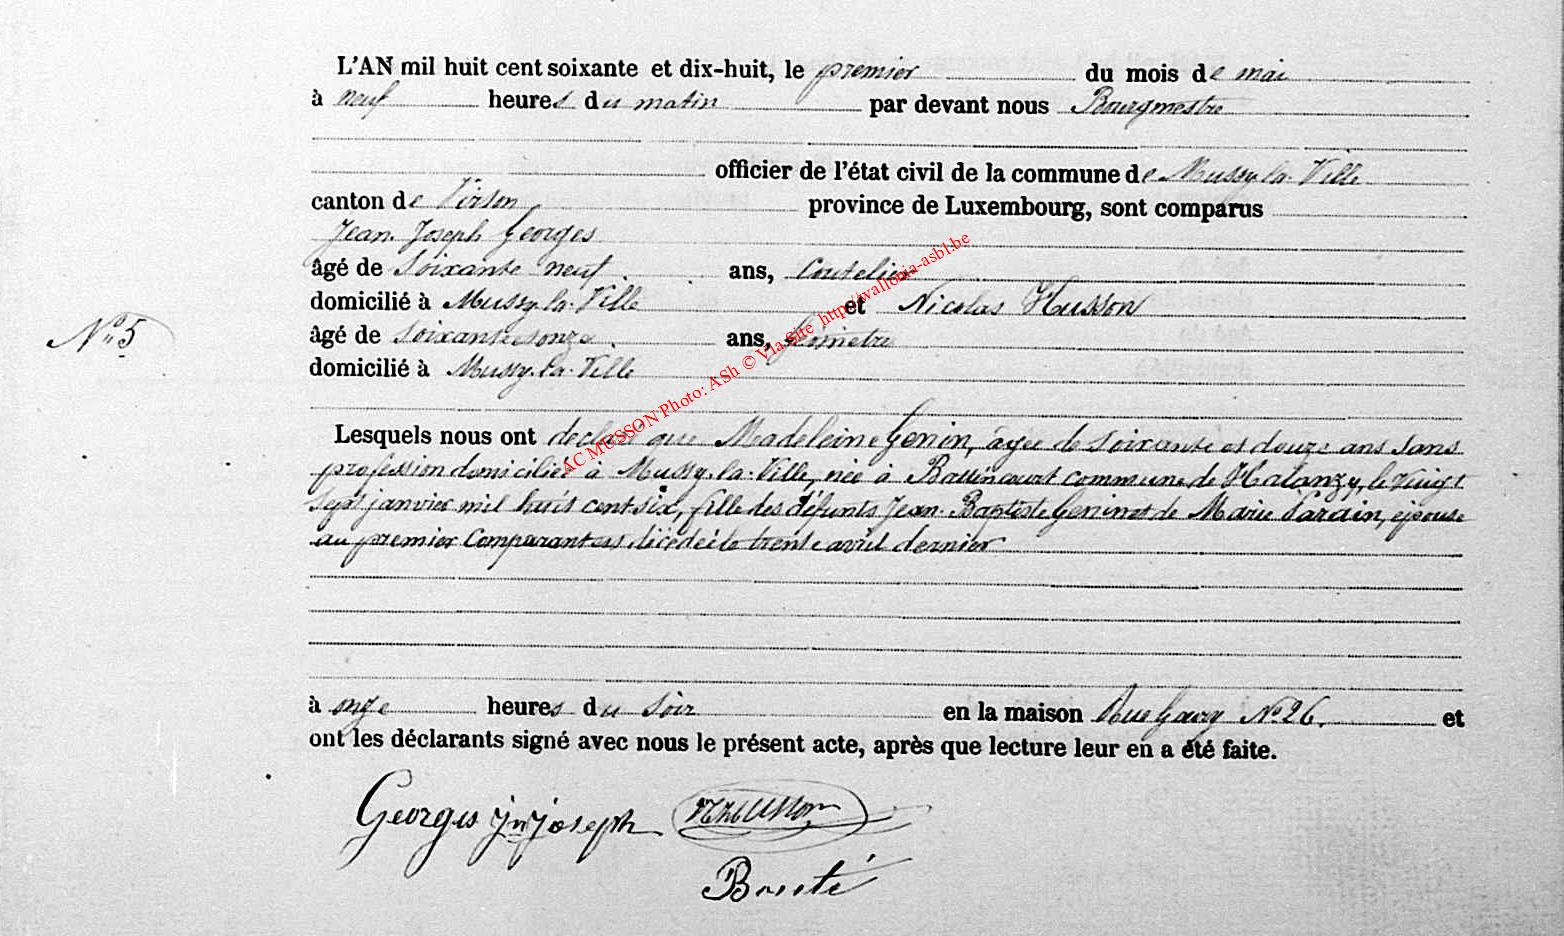 L'AN mil huit cent soixante et dix-huit, le premier du mois de mai
à neuf heures du matin par devant nous Bourgmestre
officier de l'état civil de la commune de Mussy-la-Ville
canton de Virton province de Luxembourg, sont comparus
Jean Joseph Georges
âgé de soixante neuf ans, Coutelier
domicilié à Mussy-la-Ville et Nicolas Husson
N° 5
âgé de soixante onze ans, géomètre
domicilié à Mussy-la-Ville
Lesquels nous ont déclaré que Madeleine Genin, âgée de soixante et douze ans sans
profession domiciliée à Mussy-la-Ville, née à Battincourt commune de Halanzy, le vingt
sept janvier mil huit cent six, fille des défunts Jean-Baptiste Genin et de Marie, épouse
au premier Comparant est décédée le trente avril dernier
à onze heures du soir en la maison Rue N° 26, et
ont les déclarants signé avec nous le présent acte, après que lecture leur en a été faite.
Georges Jn Joseph NHusson
AC MUSSON Photo: ASh © Via Site http://wallonia-asbl.be